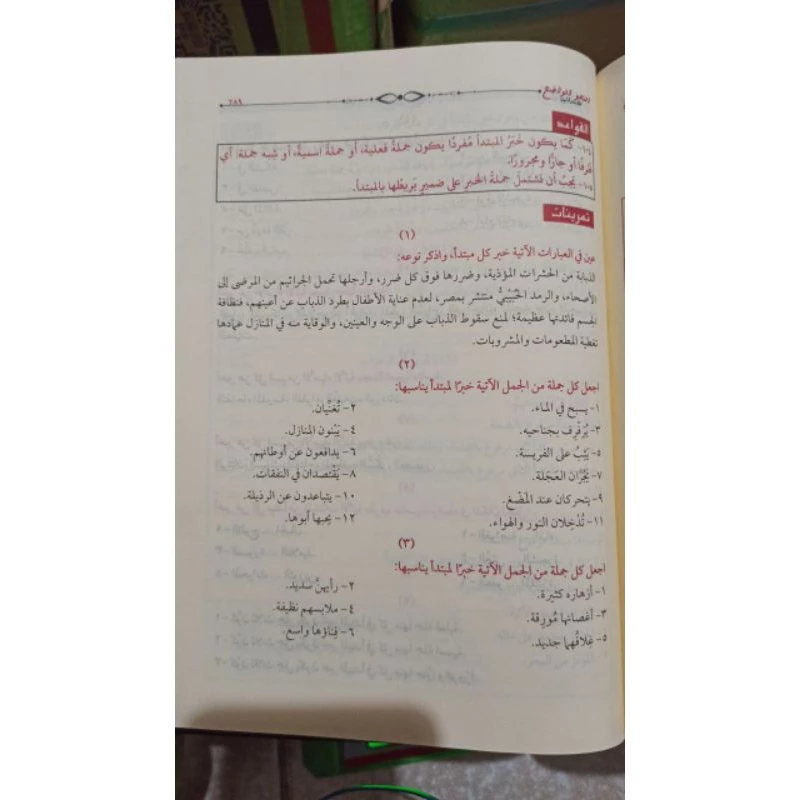 النحو الواضح
٢٨٩
القواعد
١٠٤- كَمَا يكون خَبَرُ المبتدأ مُفردًا يكون جملةً فعليةً، أو جملةً اسميةً، أو شِبه جملة: أي
ظرفًا أو جارًّا ومجرورًا.
١٠٥- يَجِبُ أن تَشْتَملَ جملةُ الخبرِ على ضميرٍ يَربطُها بالمبتدأ.
تمرينات
(١)
عين في العبارات الآتية خبر كل مبتدأ، واذكر نوعه:
الذبابة من الحشرات المؤذية، وضررها فوق كل ضرر، وأرجلها تحمل الجراثيم من المرضى إلى
الأصحاء، والرمد الحُبَيْبيُّ منتشر بمصر؛ لعدم عناية الأطفال بطرد الذباب عن أعينهم، فنظافة
الجسم فائدتها عظيمة؛ لمنع سقوط الذباب على الوجه والعينين، والوقاية منه في المنازل عمادها
تغطية المطعومات والمشروبات.
(٢)
اجعل كل جملة من الجمل الآتية خبرًا لمبتدأ يناسبها:
١- يسبح في الماء. ٢- تُغنيان.
٣- يُرفْرِف بجناحيه. ٤- يَبْنون المنازل.
٥- يَثِبُ على الفريسة. ٦- يدافعون عن أوطانهم.
٧- يَجُرَّان العَجَلة. ٨- يَقْتصدان في النفقات.
٩- يتحركان عند المَضْغ. ١٠- يتباعدون عن الرذيلة.
١١- تُدْخِلان النور والهواء. ١٢- يحبها أبوها.
(٣)
اجعل كل جملة من الجمل الآتية خبرًا لمبتدأ يناسبها:
١- أزهاره كثيرة. ٢- رأيهنَّ سديد.
٣- أغصانها مُورِقة. ٤- ملابسهم نظيفة.
٥- غِلافُهما جديد. ٦- فِناؤها واسع.